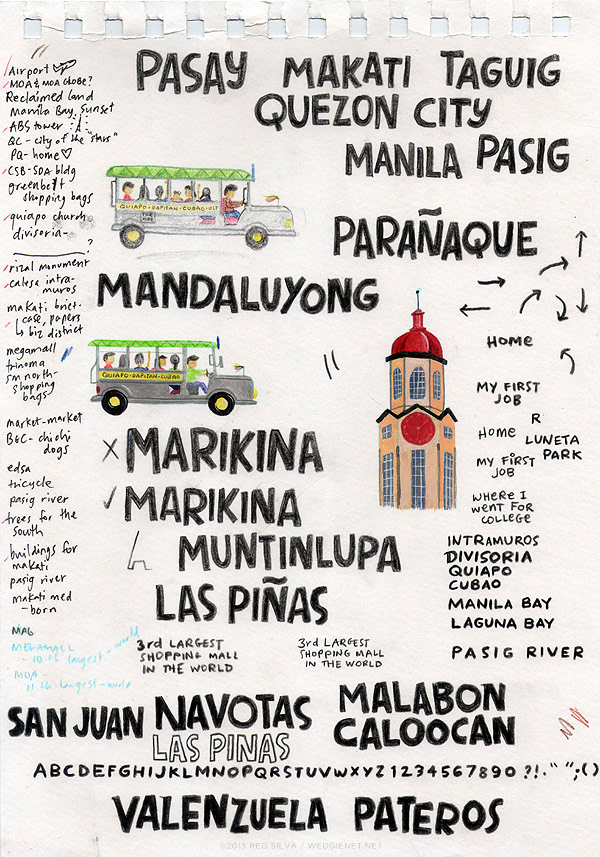 PASAY MAKATI TAGUIG
QUEZON CITY
MANILA PASIG
PARAÑAQUE
MANDALUYONG
MARIKINA
MARIKINA
MUNTINLUPA
LAS PIÑAS
3rd LARGEST
SHOPPING MALL
IN THE WORLD
3rd LARGEST
SHOPPING MALL
IN THE WORLD
SAN JUAN NAVOTAS
LAS PINAS
MALABON
CALOOCAN
ABCDEFGHIJKLMNOPQRSTUVWXYZ1234567890?!."";:()
VALENZUELA PATEROS
Airport
MOA & MOA GLOBE?
Reclaimed land
Manila Bay sunset
ABS tower
QC - city of the "stars"
PQ - home
CSB-SDA bldg
greenbelt
shopping bags
quiapo church
divisoria -
?
rizal monument
calesa intra-
muros
makati brief-
case, papers
biz district
megamall
trinoma
sm north-
shopping
bags
market-market
BGC - chichi
dogs
edsa
tricycle
pasig river
trees for the
south
buildings for
makati
pasig river
makati med
- born
MEGAMALL
- 10th largest - world
MOA -
11th largest - world
QUIAPO-DAPITAN-CUBAO
QUIAPO-DAPITAN-CUBAO
HOME
MY FIRST
JOB
HOME R
LUNETA
PARK
MY FIRST
JOB
WHERE I
WENT FOR
COLLEGE
INTRAMUROS
DIVISORIA
QUIAPO
CUBAO
MANILA BAY
LAGUNA BAY
PASIG RIVER
©2013 REG SILVA / WEDGIENET.NET